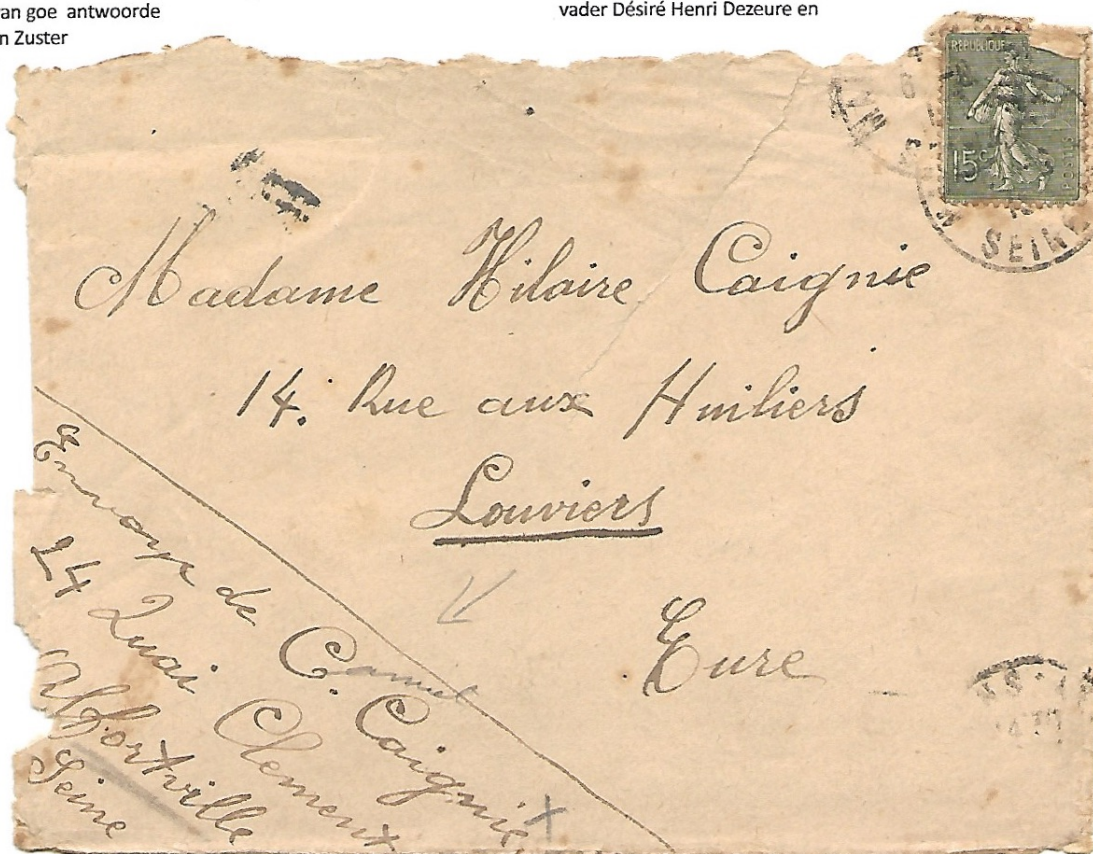 van goe antwoorde
n Zuster
vader Désiré Henri Dezeure en
REPUBLIQUE
15c
SEINE
Madame Hilaire Caignie
14. Rue aux Huiliers
Louviers
Eure
Envoye de C. Caignie
Camiel
24 Quai Clement
Alfortville
Seine